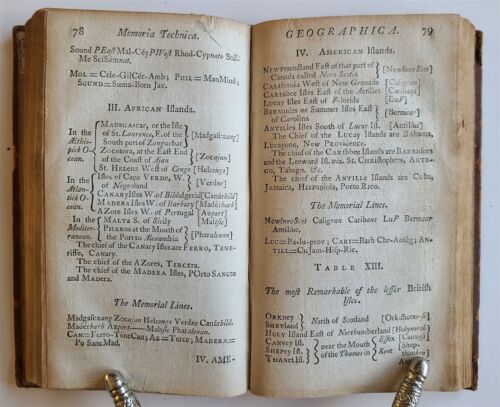 78
Memoria Technica.
Me SciSamnat.
MOL = Cele-GilCér-Amb; PHIL = ManMind;
SOUND = Suma-Born Jav.
III. AFRICAN Islands.
In the Æthiopick Ocean.
MADAGASCAR, or the Isle
of St. Laurence, E. of the
South part of Zanguebar
[Madgasczang]
ZOCOTORA, at the East End
of the Coast of Ajan
[Zocajan]
St. HELENS West of Congo [Helcongo]
In the Atlantick Ocean.
Isles of Cape VERDE, W.
of Negroland
[Verdne]
CANARY Isles W. of Bildulgerid [Canárbild]
MADERA Isles W. of Barbary [Madérbarb]
AZORE Isles W. of Portugal [Azport]
In the Mediterranean.
MALTA S. of Sicily [Malsisc]
PHAROS at the Mouth of
the Port to Alexandria
[Pharalexan]
The chief of the CANARY Isles are FERRO, TENE-
RIFFE, CANARY.
The chief of the AZORES, TERCERA.
The chief of the MADERA Isles, PORto SANCTO
and MADERA.
The Memorial Lines.
CAN=Ferro-TéneCan; AZ = Terce; MADERA=
Po SancMad.
IV. AME-
GEOGRAPHICA.
79
IV. AMERICAN Islands.
NEWFOUNDLAND East of that part of
Canada called Nova Scotia
[NewfnovScot]
CALIFORNIA West of New Granada [Caligran]
CARIBBEE Isles East of the Antilles [Cariant]
LUCAY Isles East of F-lorida [LuF]
BERMUDAS or Summer Isles East
of Carolina
[Bermcar]
ANTILLES Isles South of Lucay Isl. [Antilluc]
The Chief of the LUCAY Islands are BAHAMA,
LUCAYONE, NEW PROVIDENCE.
The chief of the CARIBBEE Islands are BARBADOES
and the Leeward Isl. viz. St. CHRISTOPHERS, ANTE-
GO, TABAGO, &c.
The chief of the ANTILLE Islands are CUBA,
JAMAICA, HISPANIOLA, PORTO RICO.
The Memorial Lines.
NewfnovScot Caligran Caribant LuF Bermcar
Antilluc.
TILL=CuJam-HisP-Ric.
TABLE XIII.
The most Remarkable of the lesser British
Isles.
ORKNEY
SHETLAND
North of Scotland
HOLY ISLAND East of Northumberland
CANVEY Isl.
SHEPEY Isl.
THANET Isl.
near the Mouth
of the Thames in
Essex
Kent